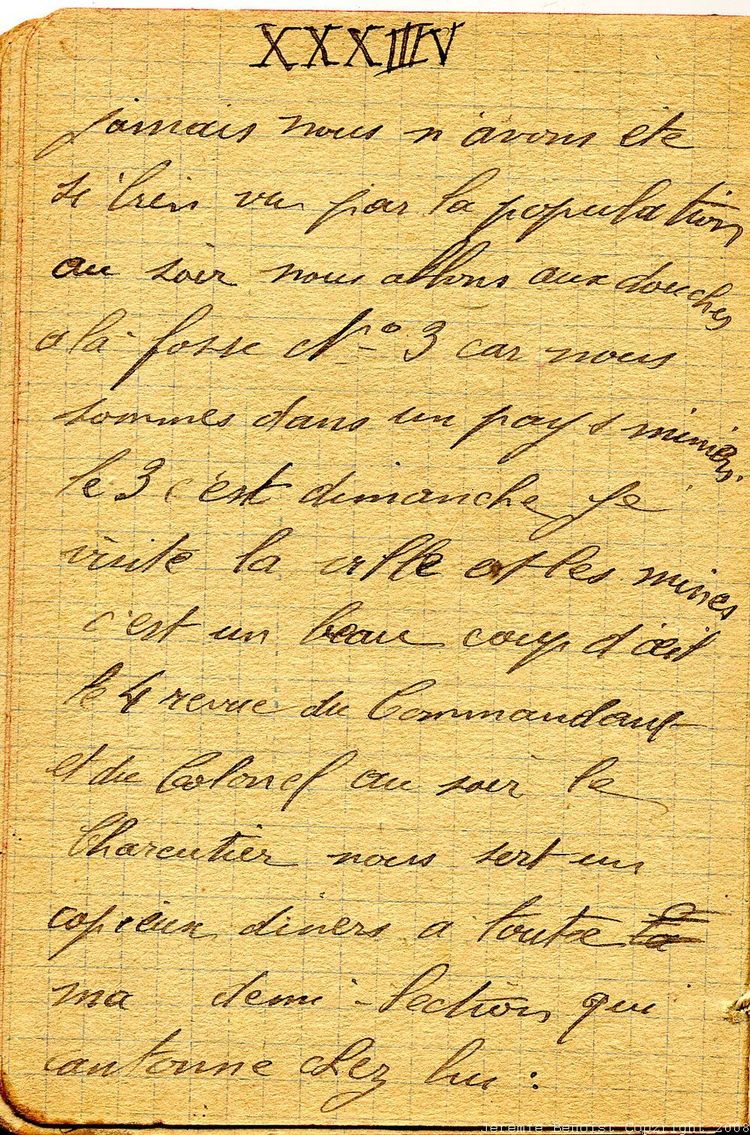 XXXIIIV
jamais nous n'avons ete
si bien vu par la population
au soir nous allons aux douches
a la fosse N° 3 car nous
sommes dans un pays miniers.
le 3 c'est dimanche je
visite la ville et les mines
c'est un beau coup d'œil
le 4 revue du Commandant
et du Colonel au soir le
Charcutier nous sert un
copieux diners a toute la
ma demi-Section qui
cantonne chez lui :
Jeremie Benoist Copyright 2008